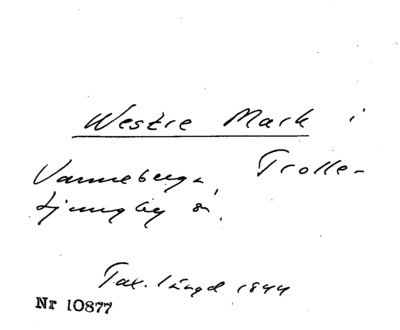 Westre Mark i
Vanneberga, Trolle-
Ljungby s.
Tax. längd 1844
Nr 10877